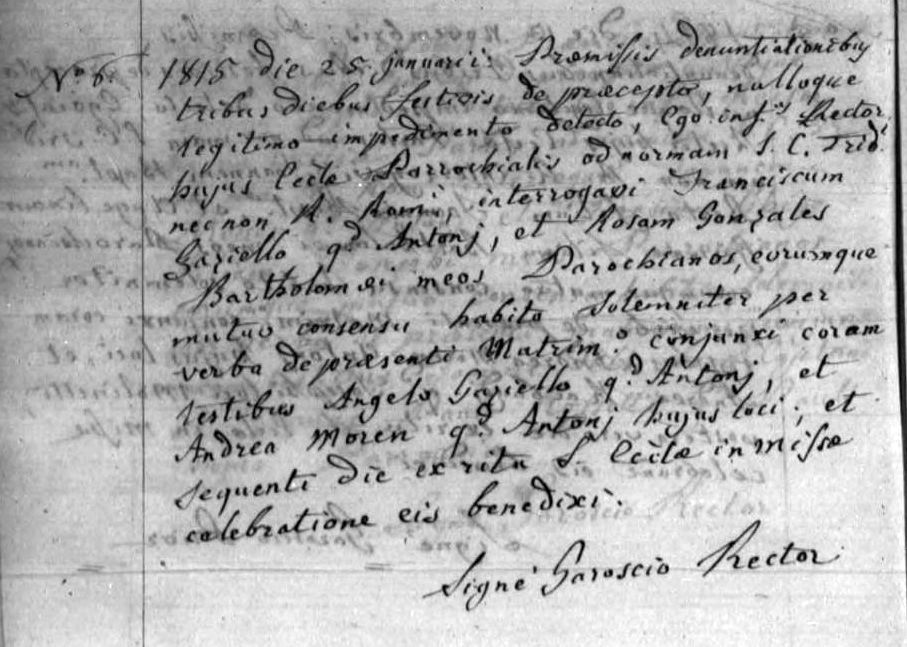 No 6. 1815 die 25. januarii. Præmissis denuntiationibus
tribus diebus festivis de præcepto, nulloque
legitimo impedimento detecto, Ego inf.s Rector
hujus Eccłæ Parrochialis ad normam S. C. Trid.
necnon R. Romi, interrogavi Franciscum
Gaziello q.d Antonj, et Rosam Gonzales
Bartholomæi meos Parochianos, eorumque
mutuo consensu habito solemniter per
verba de præsenti Matrim.o conjunxi coram
testibus Angelo Gaziello q.d Antonj, et
Andrea Moren q.d Antonj hujus loci; et
sequenti die ex ritu S Eccłæ in Missæ
celebratione eis benedixi.
Signé Garoscio Rector